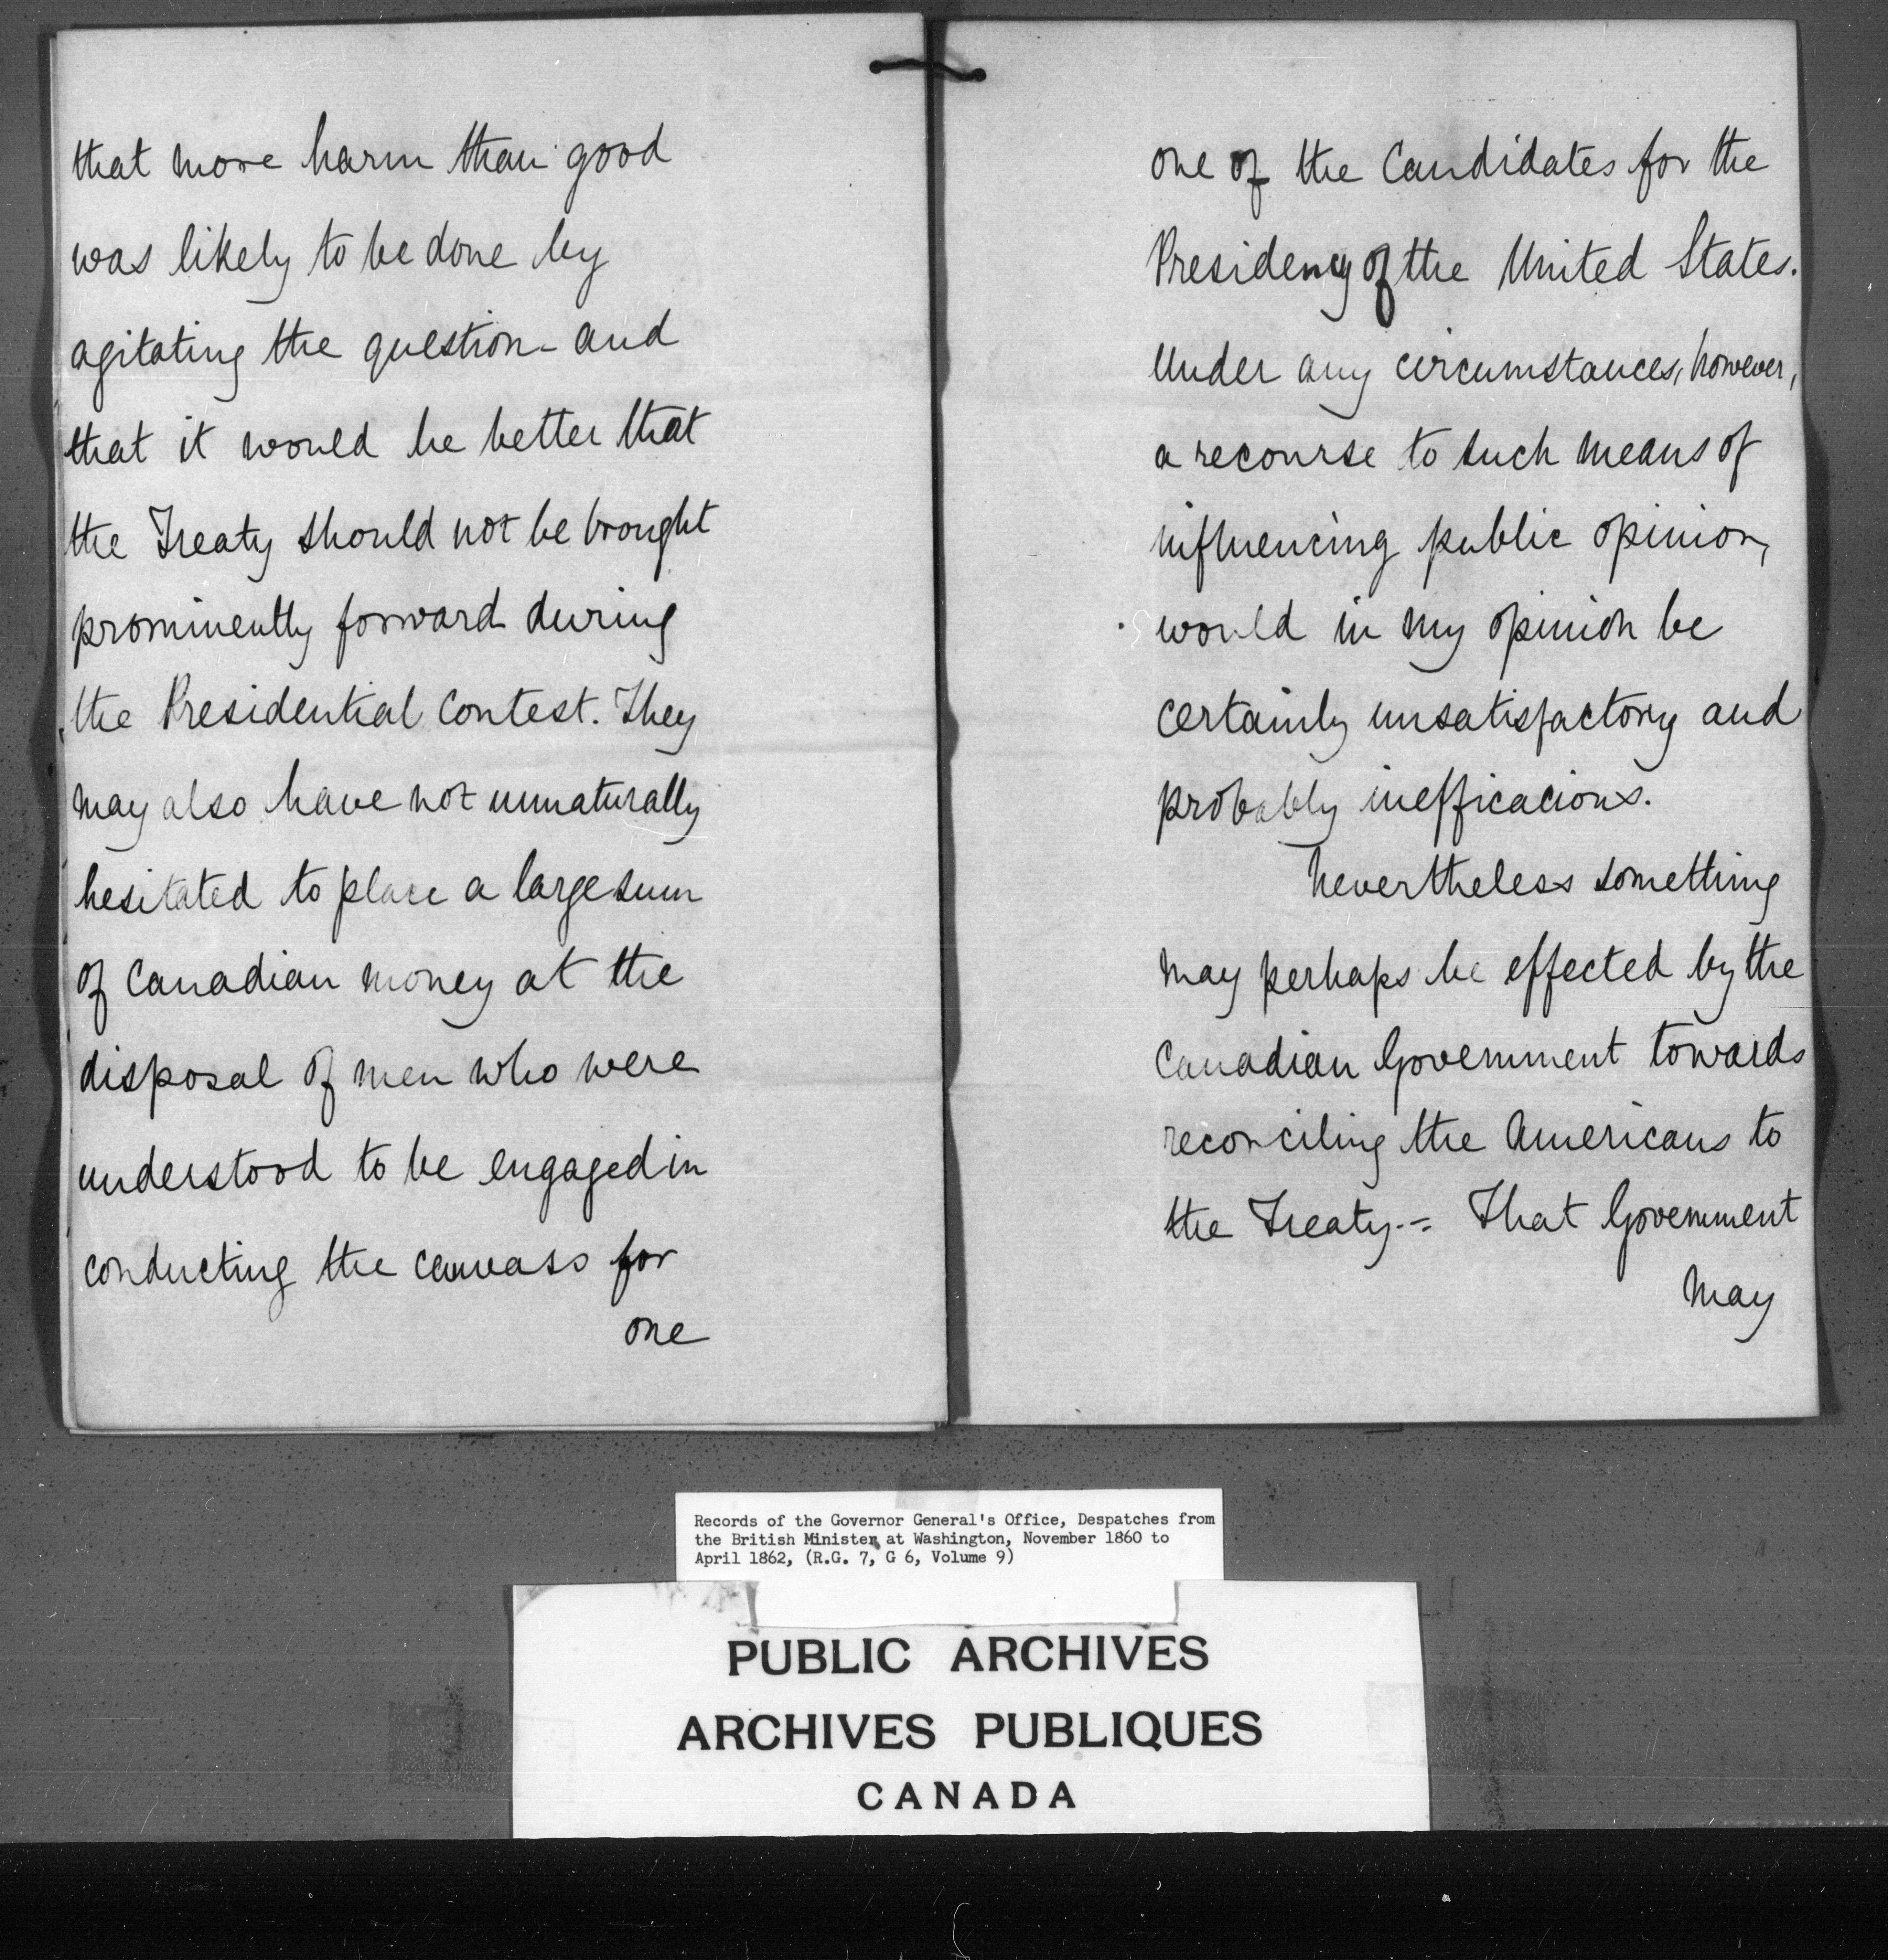 that more harm than good
was likely to be done by
agitating the question - and
that it would be better that
the Treaty should not be brought
prominently forward during
the Presidential Contest. They
may also have not unnaturally
hesitated to place a large sum
of Canadian money at the
disposal of men who were
understood to be engaged in
conducting the canvass for
one
one of the Candidates for the
Presidency of the United States.
Under any circumstances, however,
a recourse to such means of
influencing public opinion,
would in my opinion be
certainly unsatisfactory and
probably inefficacious.
Nevertheless something
may perhaps be effected by the
Canadian Government towards
reconciling the Americans to
the Treaty. - = That Government
may
Records of the Governor General's Office, Despatches from
the British Minister at Washington, November 1860 to
April 1862, (R.G. 7, G 6, Volume 9)
PUBLIC ARCHIVES
ARCHIVES PUBLIQUES
CANADA